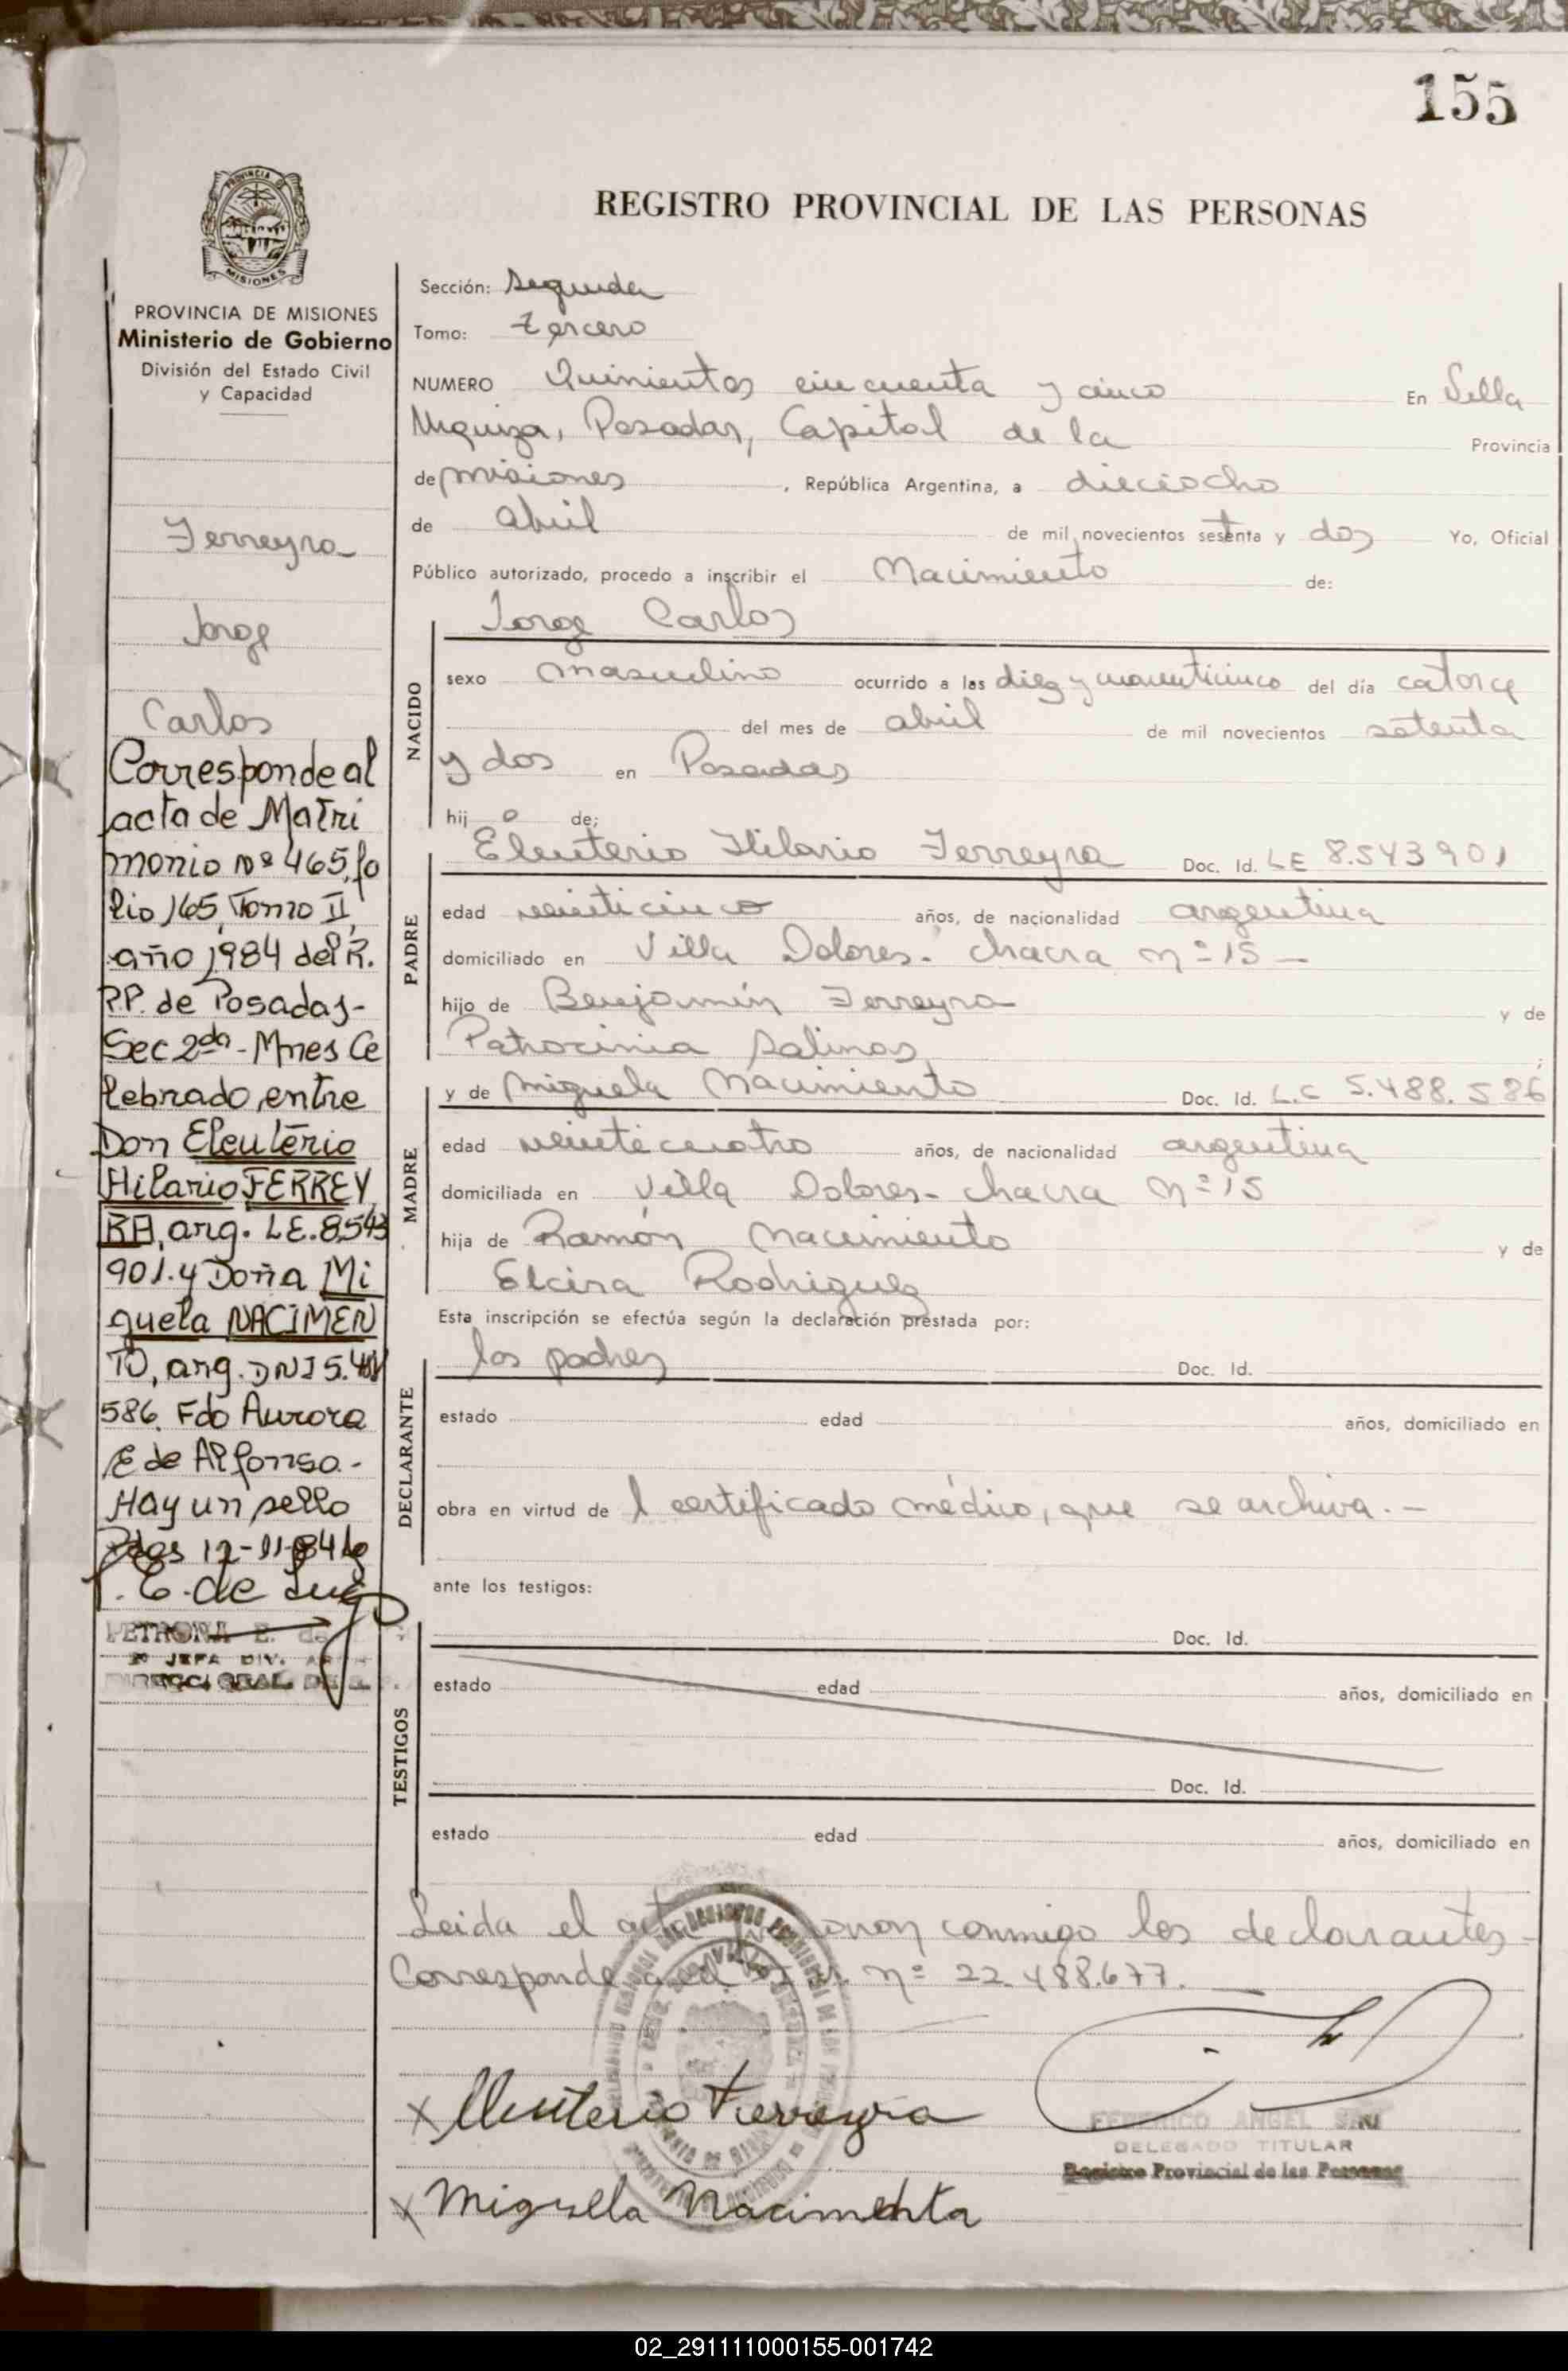 155
PROVINCIA
MISIONES
REGISTRO PROVINCIAL DE LAS PERSONAS
PROVINCIA DE MISIONES
Ministerio de Gobierno
División del Estado Civil
y Capacidad
Ferreyra
Jorge
Carlos
Corresponde al
acta de Matri
monio Nº 465, fo
lio 165, Tomo II,
año 1984 del R.
P.P. de Posadas-
Sec 2da - Mnes Ce
lebrado entre
Don Eleuterio
Hilario FERREY
RA, arg. L.E. 8.543
901. y Doña Mi
guela NACIMEN
TO, arg. DNI 5.488
586. Fdo Aurora
E de Alfonso.-
Hay un sello
Pdas 12-11-84
E. de Lugo
PETRONA E. de
JEFA DIV.
Sección: Segunda
Tomo: tercero
NUMERO Quinientos cincuenta y cinco En Villa
Urquiza, Posadas, Capital de la Provincia
de misiones , República Argentina, a dieciocho
de abril de mil novecientos setenta y dos Yo, Oficial
Público autorizado, procedo a inscribir el Nacimiento de:
NACIDO
Jorge Carlos
sexo masculino ocurrido a las diez y cuarenticinco del día catorce
del mes de abril de mil novecientos setenta
y dos en Posadas
hij o de;
PADRE
Eleuterio Hilario Ferreyra Doc. Id. LE 8.543901
edad veinticinco años, de nacionalidad argentina
domiciliado en Villa Dolores- chacra nº 15 -
hijo de Benjamín Ferreyra y de
Patrocinia Salinas ;
MADRE
y de Miguela Nacimiento Doc. Id. L.C 5.488.586
edad veinticuatro años, de nacionalidad argentina
domiciliada en Villa Dolores- chacra nº 15
hija de Ramón Nacimiento y de
Elcira Rodriguez
Esta inscripción se efectúa según la declaración prestada por:
DECLARANTE
los padres Doc. Id.
estado edad años, domiciliado en
obra en virtud de l certificado médico, que se archiva. -
ante los testigos:
TESTIGOS
Doc. Id.
estado edad años, domiciliado en
Doc. Id.
estado edad años, domiciliado en
Leida el acta conmigo los declarantes -
Corresponde nº 22.488.677.
Eleuterio Ferreyra
Miguela Nacimento
FEDERICO ANGEL
DELEGADO TITULAR
Registro Provincial de las Personas
02_291111000155-001742